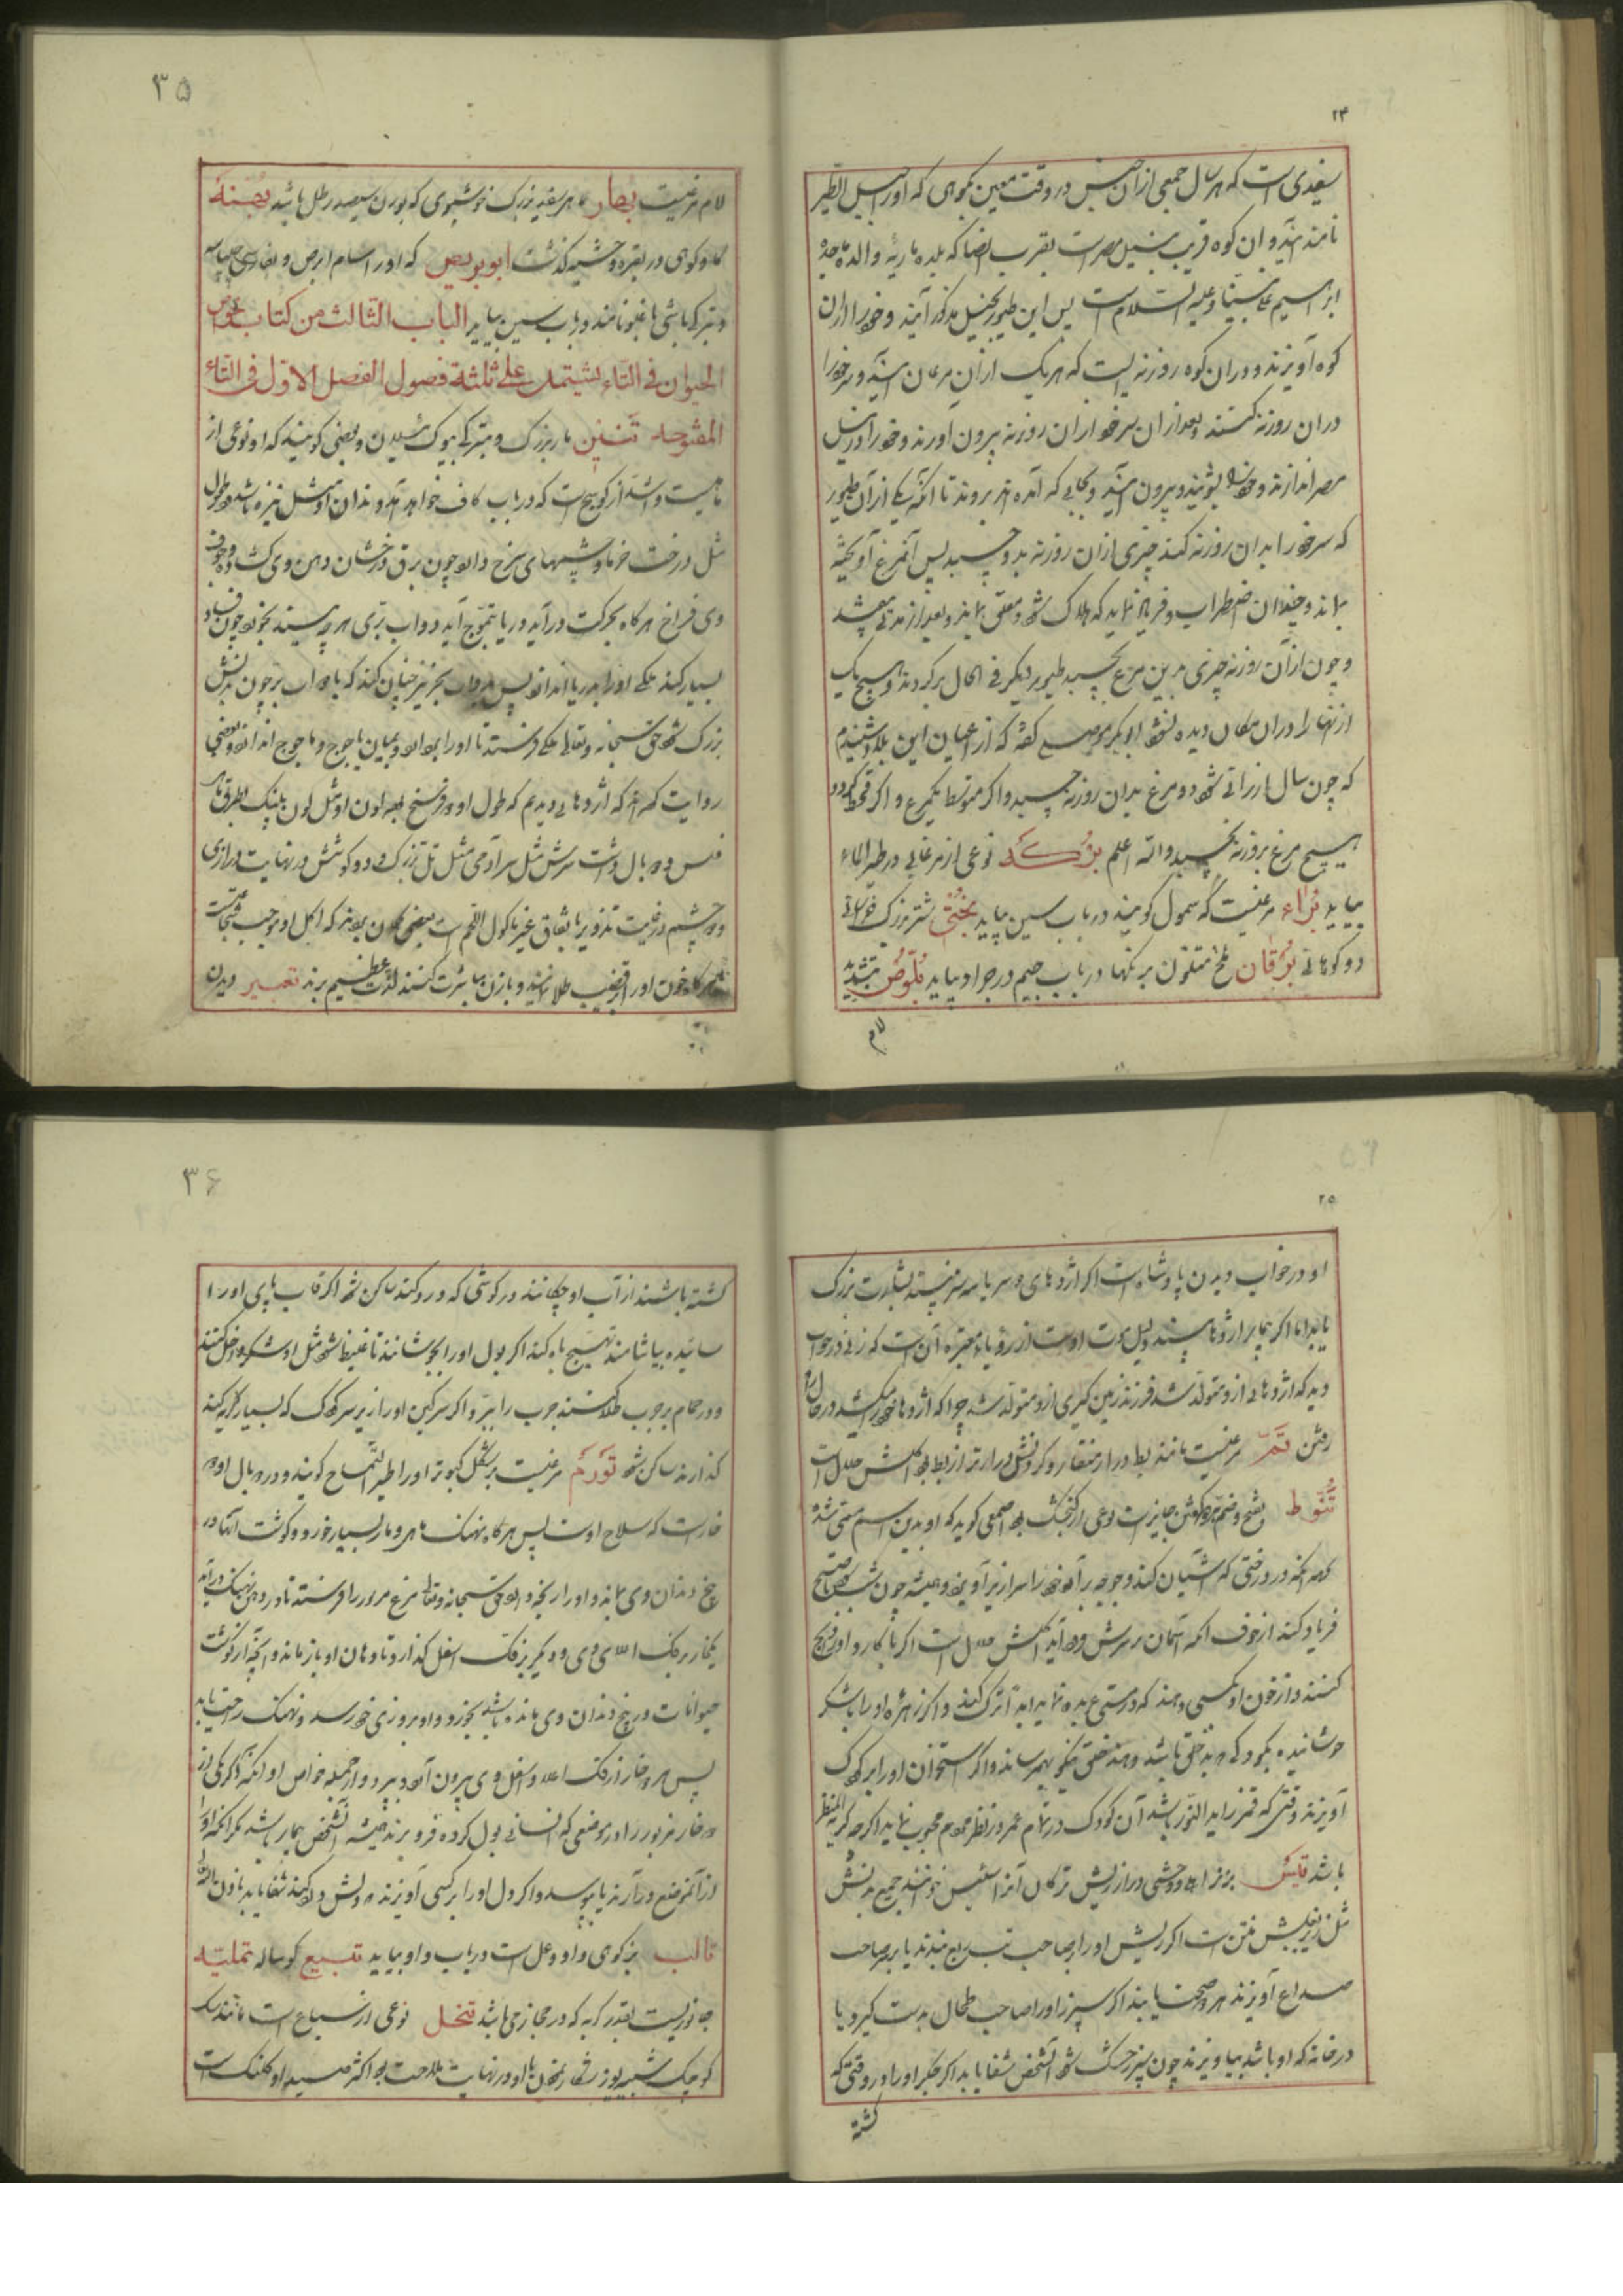 ۲۴
سفیدی است که هر سال جمعی از آن جنس در وقت معین بکوهی که اورا جبل الطیر
نامند آیند و آن کوه قریب بنیل مصر است بقرب انصنا که بلده ماریه والده ماجده
ابراهیم علی نبینا وعلیه السلام است پس این طیور بجبل مذکور آیند وخود را از آن
کوه آویزند و در آن کوه روزنه ایست که هر یک از آن مرغان آید و سر خود را
در آن روزنه کنند و بعد از آن سر خود از آن روزنه بیرون آورند وخود را در نیل
مصر اندازند وخود را بشویند و بیرون آیند و بجایی که آمده اند بروند تا آنکه یکی از آن طیور
که سر خود را بدان روزنه کند چیزی از آن روزنه بدو چسبد پس آنمرغ آویخته
بماند و چندان اضطراب و فریاد نماید که هلاک شود و معلق بماند و بعد از مدتی بیفتد
و چون از آن روزنه چیزی بدین مرغ بچسبد طیور دیگر فی الحال برگردند و هیچ یک
از آنها را در آن مکان دیده نشود ابوبکر موصلی گفته که از اعیان این بلاد شنیدم
که چون سال ارزانی شود دو مرغ بدان روزنه چسبد و اگر متوسط یکمرغ و اگر قحط گردد
هیچ مرغ بروزنه نچسبد والله اعلم برکه نوعی از مرغابی در طیر الماء
بیاید براء مرغیست که سمول گویند در باب سین بیاید بختی شتر بزرگ خراسانی
دو کوهانی برقان ملخ متلون برنگها در باب جیم در جراد بیاید بلّوص بتشدید
لام
۳۵
لام مرغیست بهار ماهی سفید بزرگ خوشبوی که بوزن سیصد رطل باشد بهنة
گاو کوهی در بقره وحشیه گذشت ابوبریص که اورا سام ابرص و بفارسی چلپاسه
و بترکی باشی باغلو نامند در باب سین بیاید الباب الثالث من کتاب خواص
الحیوان فی التاء یشتمل علی ثلثة فصول الفصل الاول فی التاء
المفتوحه تنین مار بزرگ و بترکی بیوک ییلان و بعضی گویند که او نوعی از
ماهیست و اشد از کوسج است که در باب کاف خواهد آمد و دندان او مثل نیزه باشد و طول
مثل درخت خرما و چشمهای سرخ دارد چون برق درخشان دهن وی گشاده و جوف
وی فراخ هرگاه بحرکت درآید دریا بتموج آید دواب بری هر چه بیند بخورد چون فساد
بسیار کند ملکی اورا بدریا اندازد پس بدواب بحر نیز چنان کند که با دواب بر چون بدنش
بزرگ شود حق سبحانه وتعالی ملکی فرستد تا اورا بردارد و بمیان یاجوج و ماجوج اندازد و بعضی
روایت کرده اند که اژدهائی دیدیم که طول او دو فرسخ بود لون او مثل لون پلنگ
فلس و دو بال داشت سرش مثل سر آدمی مثل تل بزرگ و دو گوشش در نهایت درازی
و دو چشم مدور باتفاق غیر مأکول اللحم است بعضی گمان برده اند که اکل او موجب شجاعت
هرگاه خون اورا بر قضیب طلا نمایند و با زن مباشرت کنند لذت عظیم برند تعبیر دیدن
۲۵
او در خواب دیدن پادشاه است اگر اژدهای دو سر یا سه سر بیند بشارت بزرگ
یابد اما اگر بیمار اژدها بیند دلیل موت اوست از رؤیای معتبره آن است که زنی در خواب
دید که اژدهائی از او متولد شد فرزند زمین گیری از او متولد شد چرا که اژدها خود را میکشد در حال راه
رفتن تمّ مرغیست مانند بط دراز منقار و گردنش درازتر از بط بود اکلش حلال است
تنوّط بفتح و ضم تا هر دو گفتن جایز است نوعی از گنجشک بود اصمعی گوید که او بدین اسم مسمی شده
بجهه آنکه در درختی که آشیان کند وجوجه برآرد خود را سرازیر آویزد و همیشه چون شب شود تا صبح
فریاد کند از خوف آنکه آسمان بر سرش فرود آید اکلش حلال است اگر با کارد اورا ذبح
کنند و از خون او بکسی دهند که در مستی عربده نماید آنرا ترک کند و اگر زهره اورا با شکر
جوشانیده بکودکی دهند که بد خلق باشد خلق نیکو بهم رساند و اگر استخوان اورا بر کودک
آویزند وقتی که قمر زاید النور باشد آن کودک در تمام عمر در نظر مردم محبوب نماید اگرچه کریه المنظر
باشد تیس بز نر اهلی و وحشی دراز ریش ترکان آنرا خوانند جمیع بدنش
مثل زیر بغلش منتن است اگر ریش اورا بر صاحب تب ربع بندند یا بر صاحب
صداع آویزند هر دو صحت یابند اگر سپرز اورا صاحب طحال بدست گیرد یا
در خانه که او باشد بیاویزند چون سپرز خشک شود آنشخص شفا یابد اگر جگر اورا در وقتی که
کشته
۳۶
کشته باشند از آب او چکانند در گوشی که درد کند ساکن شود اگر قاب پای اورا
سائیده بیاشامند تهییج باه کند اگر بول اورا بجوشانند تا غلیظ شود مثل او شکر داخل کنند
و در حمام بر جرب طلا کنند جرب را ببرد و اگر سرگین اورا زیر سر کودک که بسیار گریه کند
گذارند ساکن شود تورم مرغیست بشکل کبوتر اورا طیر التمساح گویند و در دو بال او دو
خار است که سلاح اوست پس هرگاه نهنگ ماهی و مار بسیار خورد و گوشت آنها در
بیخ دندان وی بماند و اورا رنجه دارد حق سبحانه وتعالی مرغ مزبور را فرستد تا در دهن نهنگ درآید
یکخار بر فک اعلای وی و دیگر بر فک اسفل گذارد تا دهان او باز ماند و آنچه از گوشت
حیوانات در بیخ دندان وی مانده باشد بخورد و او بروزی خود رسد و نهنگ راحت یابد
پس هر دو خار از فک اعلا و اسفل وی بیرون آرد و بپرد و از جمله خواص او آنکه اگر یکی از
دو خار مزبور را در موضعی که انسانی بول کرده فرو برند همیشه آنشخص بیمار باشد مگر آنکه اورا
از آنموضع درآرند یا بپوسد و اگر دل اورا بر کسی آویزند که دلش درد کند شفا یابد باذن الله تعالی
تالب بز کوهی و او وعل است در باب واو بیاید تبیع گوساله تملیة
جانوریست بقدر گربه که در حجاز می باشد تنخل نوعی از سباع است مانند سگ
کوچک شبیه بیوز و در نهایت ملاحت بود اکثر صید او کلنگ است